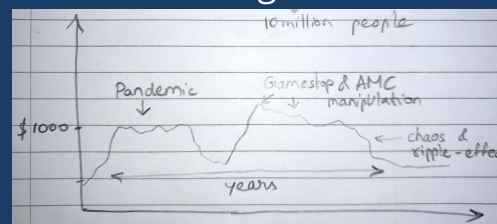 10 million people
Pandemic
Gamestop & AMC
manipulation
$1000
chaos &
ripple-effe
years